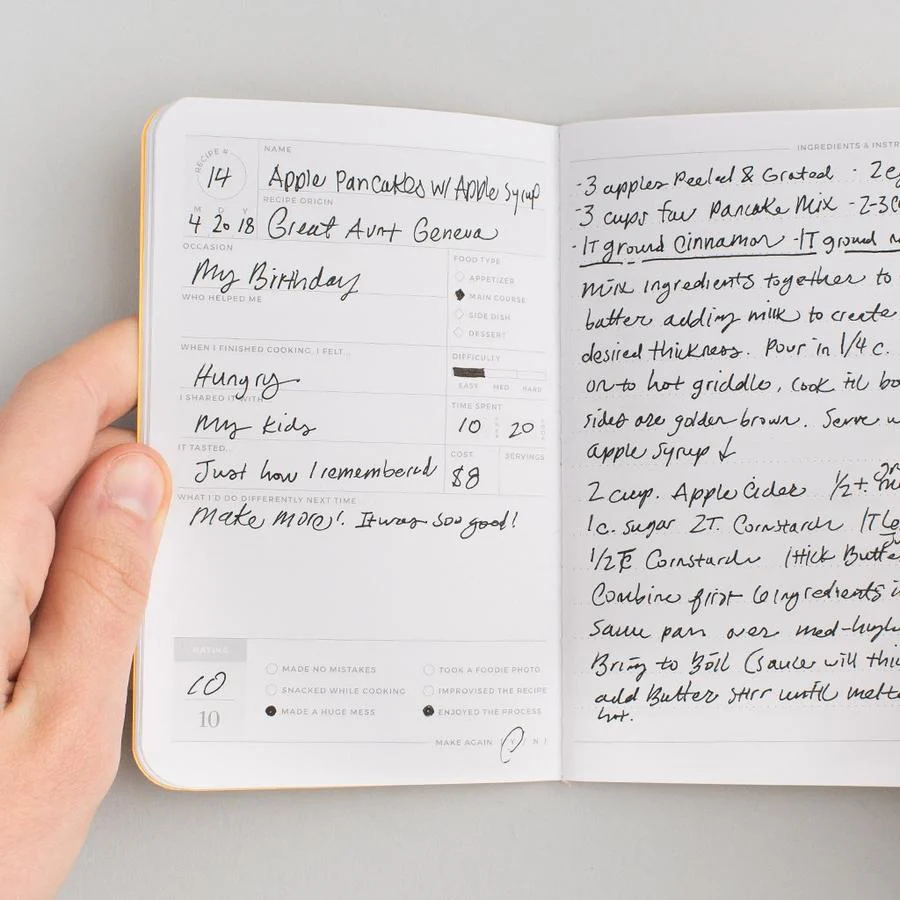 RECIPE #
14
NAME
Apple Pancakes w/ Apple Syrup
M D Y
4 20 18
RECIPE ORIGIN
Great Aunt Geneva
OCCASION
My Birthday
WHO HELPED ME
FOOD TYPE
APPETIZER
MAIN COURSE
SIDE DISH
DESSERT
WHEN I FINISHED COOKING, I FELT...
Hungry.
DIFFICULTY
EASY MED HARD
I SHARED IT WITH
My kids
TIME SPENT
10 20
IT TASTED...
Just how I remembered
COST
$8
SERVINGS
WHAT I'D DO DIFFERENTLY NEXT TIME
Make more! It was soo good!
RATING
10
10
MADE NO MISTAKES
SNACKED WHILE COOKING
MADE A HUGE MESS
TOOK A FOODIE PHOTO
IMPROVISED THE RECIPE
ENJOYED THE PROCESS
MAKE AGAIN ( Y / N )
INGREDIENTS & INSTR
-3 apples Peeled & Grated - 2 e
-3 cups fav Pancake Mix - 2-3 C
-1T ground Cinnamon -1T ground
mix ingredients together to
batter adding milk to create
desired thickness. Pour in 1/4 c.
on to hot griddle, cook til bo
sides are golden brown. Serve w
apple syrup ↓
2 cup. Apple Cider 1/2 t.
1c. sugar 2T. Cornstarch 1T Le
1/2 Cornstarch 1 stick Butte
Combine first 6 ingredients i
Sauce pan over med-high
Bring to Boil (sauce will thi
add Butter stir until melt
hot.